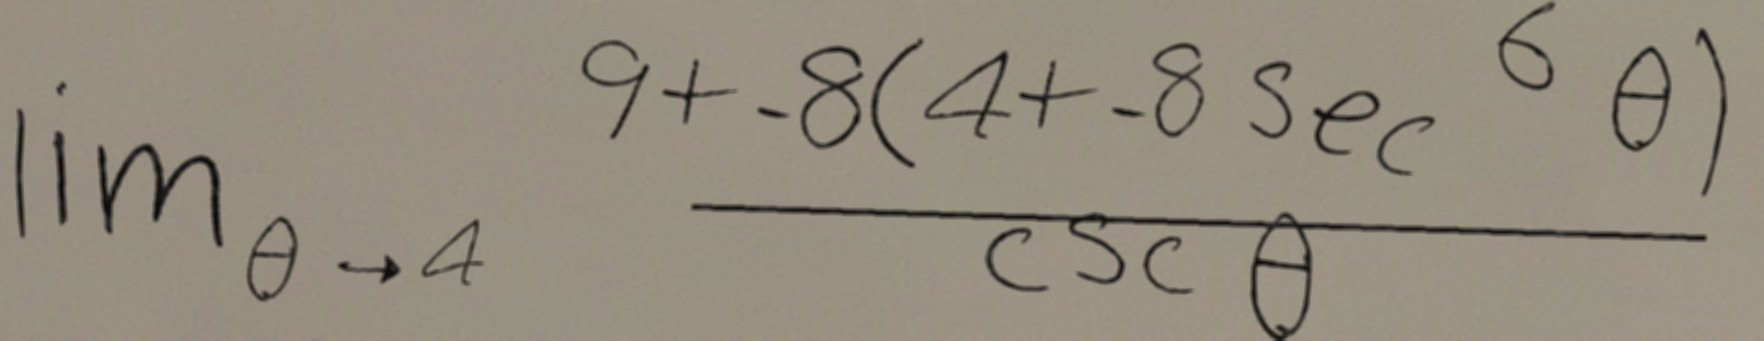 \lim_{\theta \to 4} \frac{9+-8(4+-8\sec^6\theta)}{\csc\theta}